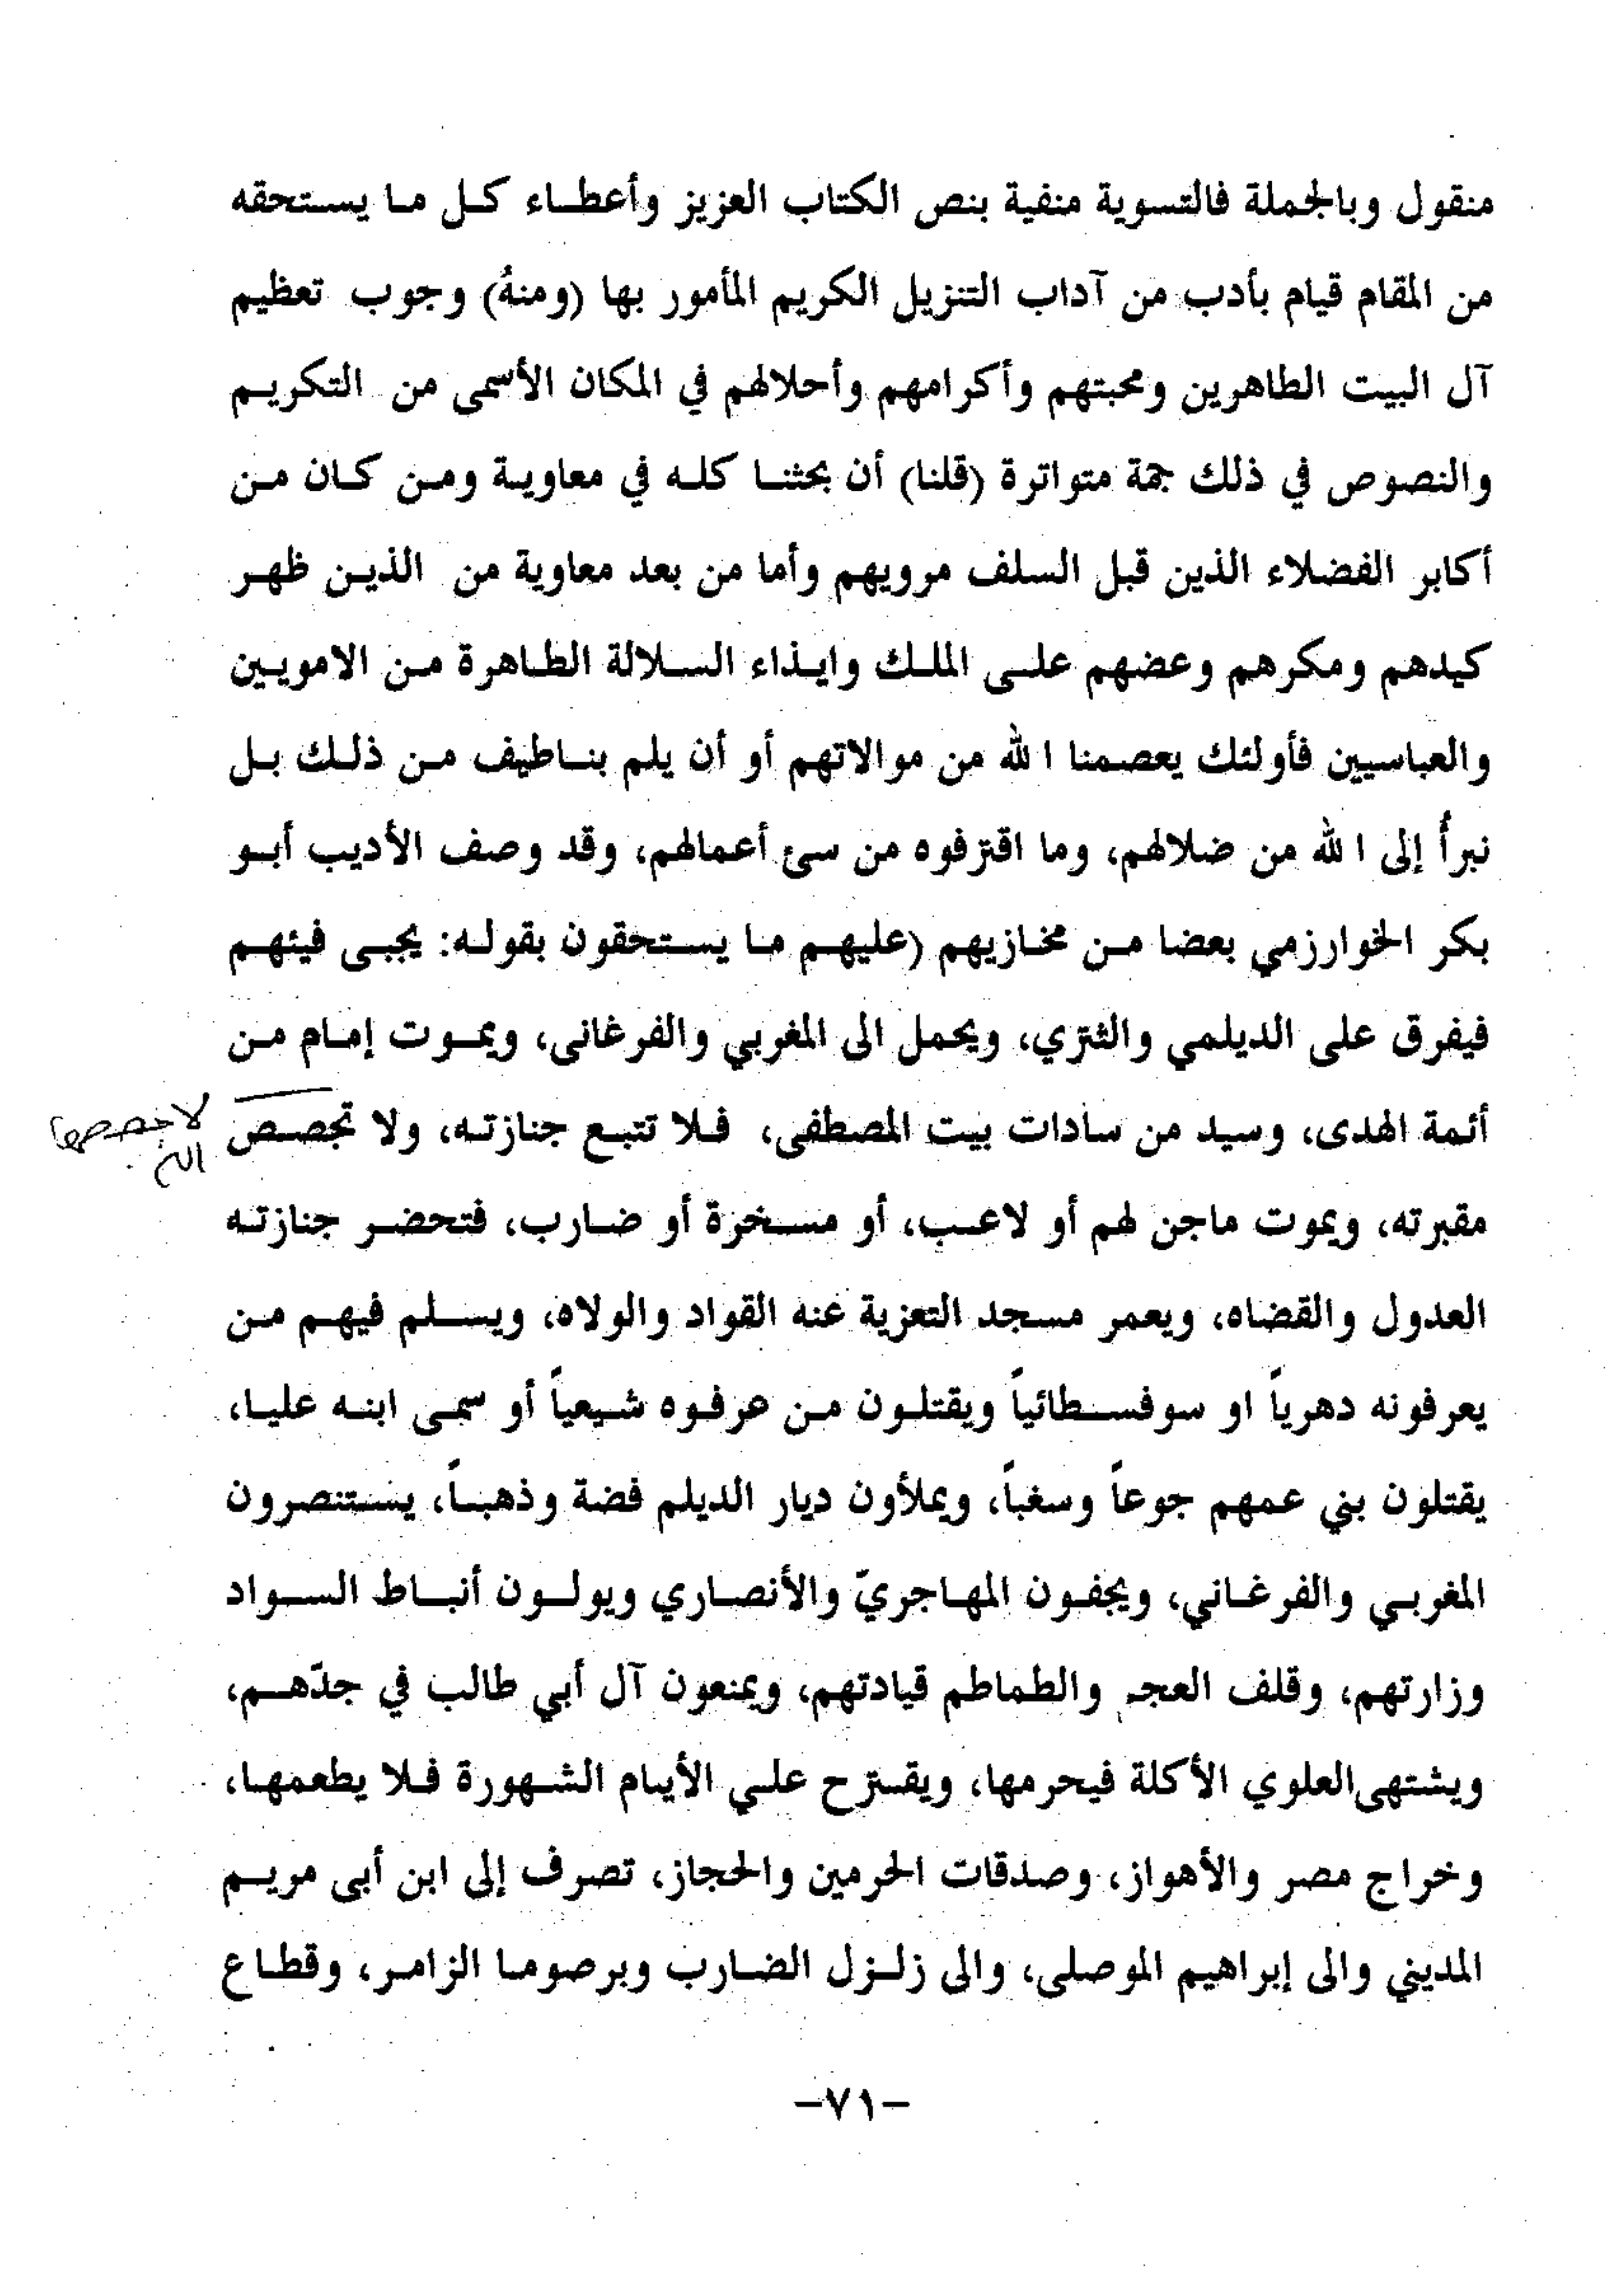 منقول وبالجملة فالتسوية منفية بنص الكتاب العزيز وأعطاء كل ما يستحقه
من المقام قيام بأدب من آداب التنزيل الكريم المأمور بها (ومنهُ) وجوب تعظيم
آل البيت الطاهرين ومحبتهم وأكرامهم وأحلالهم في المكان الأسمى من التكريم
والنصوص في ذلك جمة متواترة (قلنا) أن بحثنا كله في معاوية ومن كان من
أكابر الفضلاء الذين قبل السلف مرويهم وأما من بعد معاوية من الذين ظهر
كيدهم ومكرهم وعضهم على الملك وايذاء السلالة الطاهرة من الامويين
والعباسيين فأولئك يعصمنا الله من موالاتهم أو أن يلم بنا طيف من ذلك بل
نبرأُ إلى الله من ضلالهم، وما اقترفوه من سئ أعمالهم، وقد وصف الأديب أبو
بكر الخوارزمي بعضا من مخازيهم (عليهم ما يستحقون بقوله: يجبى فيئهم
فيفرق على الديلمي والثتري، ويحمل الى المغربي والفرغانى، ويموت إمام من
أئمة الهدى، وسيد من سادات بيت المصطفى، فلا تتبع جنازته، ولا تجصص
لا جصصها
مقبرته، ويموت ماجن لهم أو لاعب، أو مسخرة أو ضارب، فتحضر جنازته
العدول والقضاه، ويعمر مسجد التعزية عنه القواد والولاه، ويسلم فيهم من
يعرفونه دهرياً او سوفسطائياً ويقتلون من عرفوه شيعياً أو سمى ابنه عليا،
يقتلون بني عمهم جوعاً وسغباً، ويملأون ديار الديلم فضة وذهباً، يستنصرون
المغربي والفرغاني، ويجفون المهاجريّ والأنصاري ويولون أنباط السواد
وزارتهم، وقلف العجم والطماطم قيادتهم، ويمنعون آل أبي طالب في جدّهم،
ويشتهى العلوي الأكلة فيحرمها، ويقترح علي الأيام الشهورة فلا يطعمها،
وخراج مصر والأهواز، وصدقات الحرمين والحجاز، تصرف إلى ابن أبى مريم
المديني والى إبراهيم الموصلى، والى زلزل الضارب وبرصوما الزامر، وقطاع
-٧١-